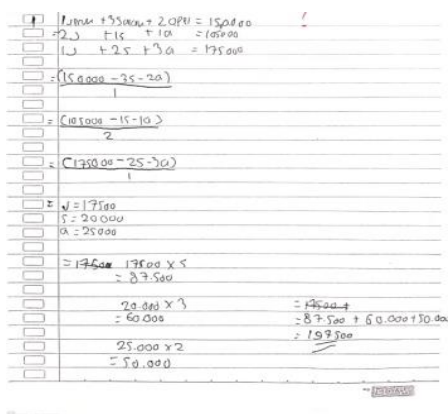 1 Jeruk + 3Sawo + 2 apel = 150.000
= 2J + 1s + 1a = 105000
1J + 2s + 3a = 175000
= (150000 - 3s - 2a)
1
= (105000 - 1s - 1a)
2
= (175000 - 2s - 3a)
1
= J = 17500
s = 20000
a = 25000
= 17500 17500 x 5
= 87.500
20.000 x 3
= 60.000
25.000 x 2
= 50.000
= 17500 +
= 87.500 + 60.000 + 50.000
= 197500